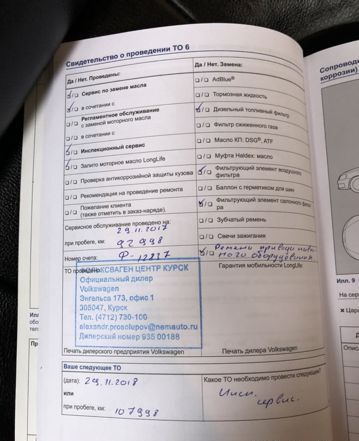 Свидетельство о проведении ТО 6
Да / Нет. Проведены:
Сервис по замене масла
в сочетании с
Регламентное обслуживание
с заменой моторного масла
в сочетании с
Инспекционный сервис
Залито моторное масло LongLife
Проверка антикоррозийной защиты кузова
Рекомендации на проведение ремонта
Пожелания клиента
(также отметить в заказ-наряде).
Сервисное обслуживание проведено на:
29.11.2018
при пробеге, км: 92998
Номер счета: Ф-12217
ТО проведено:
ФОЛЬКСВАГЕН ЦЕНТР КУРСК
Официальный дилер
Volkswagen
Энгельса 173, офис 1
305047, Курск
Тел. (4712) 730-100
alexandr.prosolupov@nemauto.ru
Дилерский номер 935 00188
Печать дилерского предприятия Volkswagen
Да / Нет. Замена:
AdBlue®
Тормозная жидкость
Дизельный топливный фильтр
Фильтр сжиженного газа
Масло КП: DSG®, ATF
Муфта Haldex: масло
Фильтрующий элемент воздушного
фильтра
Баллон с герметиком для шин
Фильтрующий элемент салонного фильт-
ра
Зубчатый ремень
Свечи зажигания
Ремень привода наве
ного оборудования
Гарантия мобильности LongLife
Печать дилера Volkswagen
Ваше следующее ТО
(дата): 29.11.2018
или
при пробеге, км: 107998
Какое ТО необходимо провести следующим?
Инсп.
сервис.
Сопровод
коррозии)
Илл. 9
На сер
× Цар
Опис